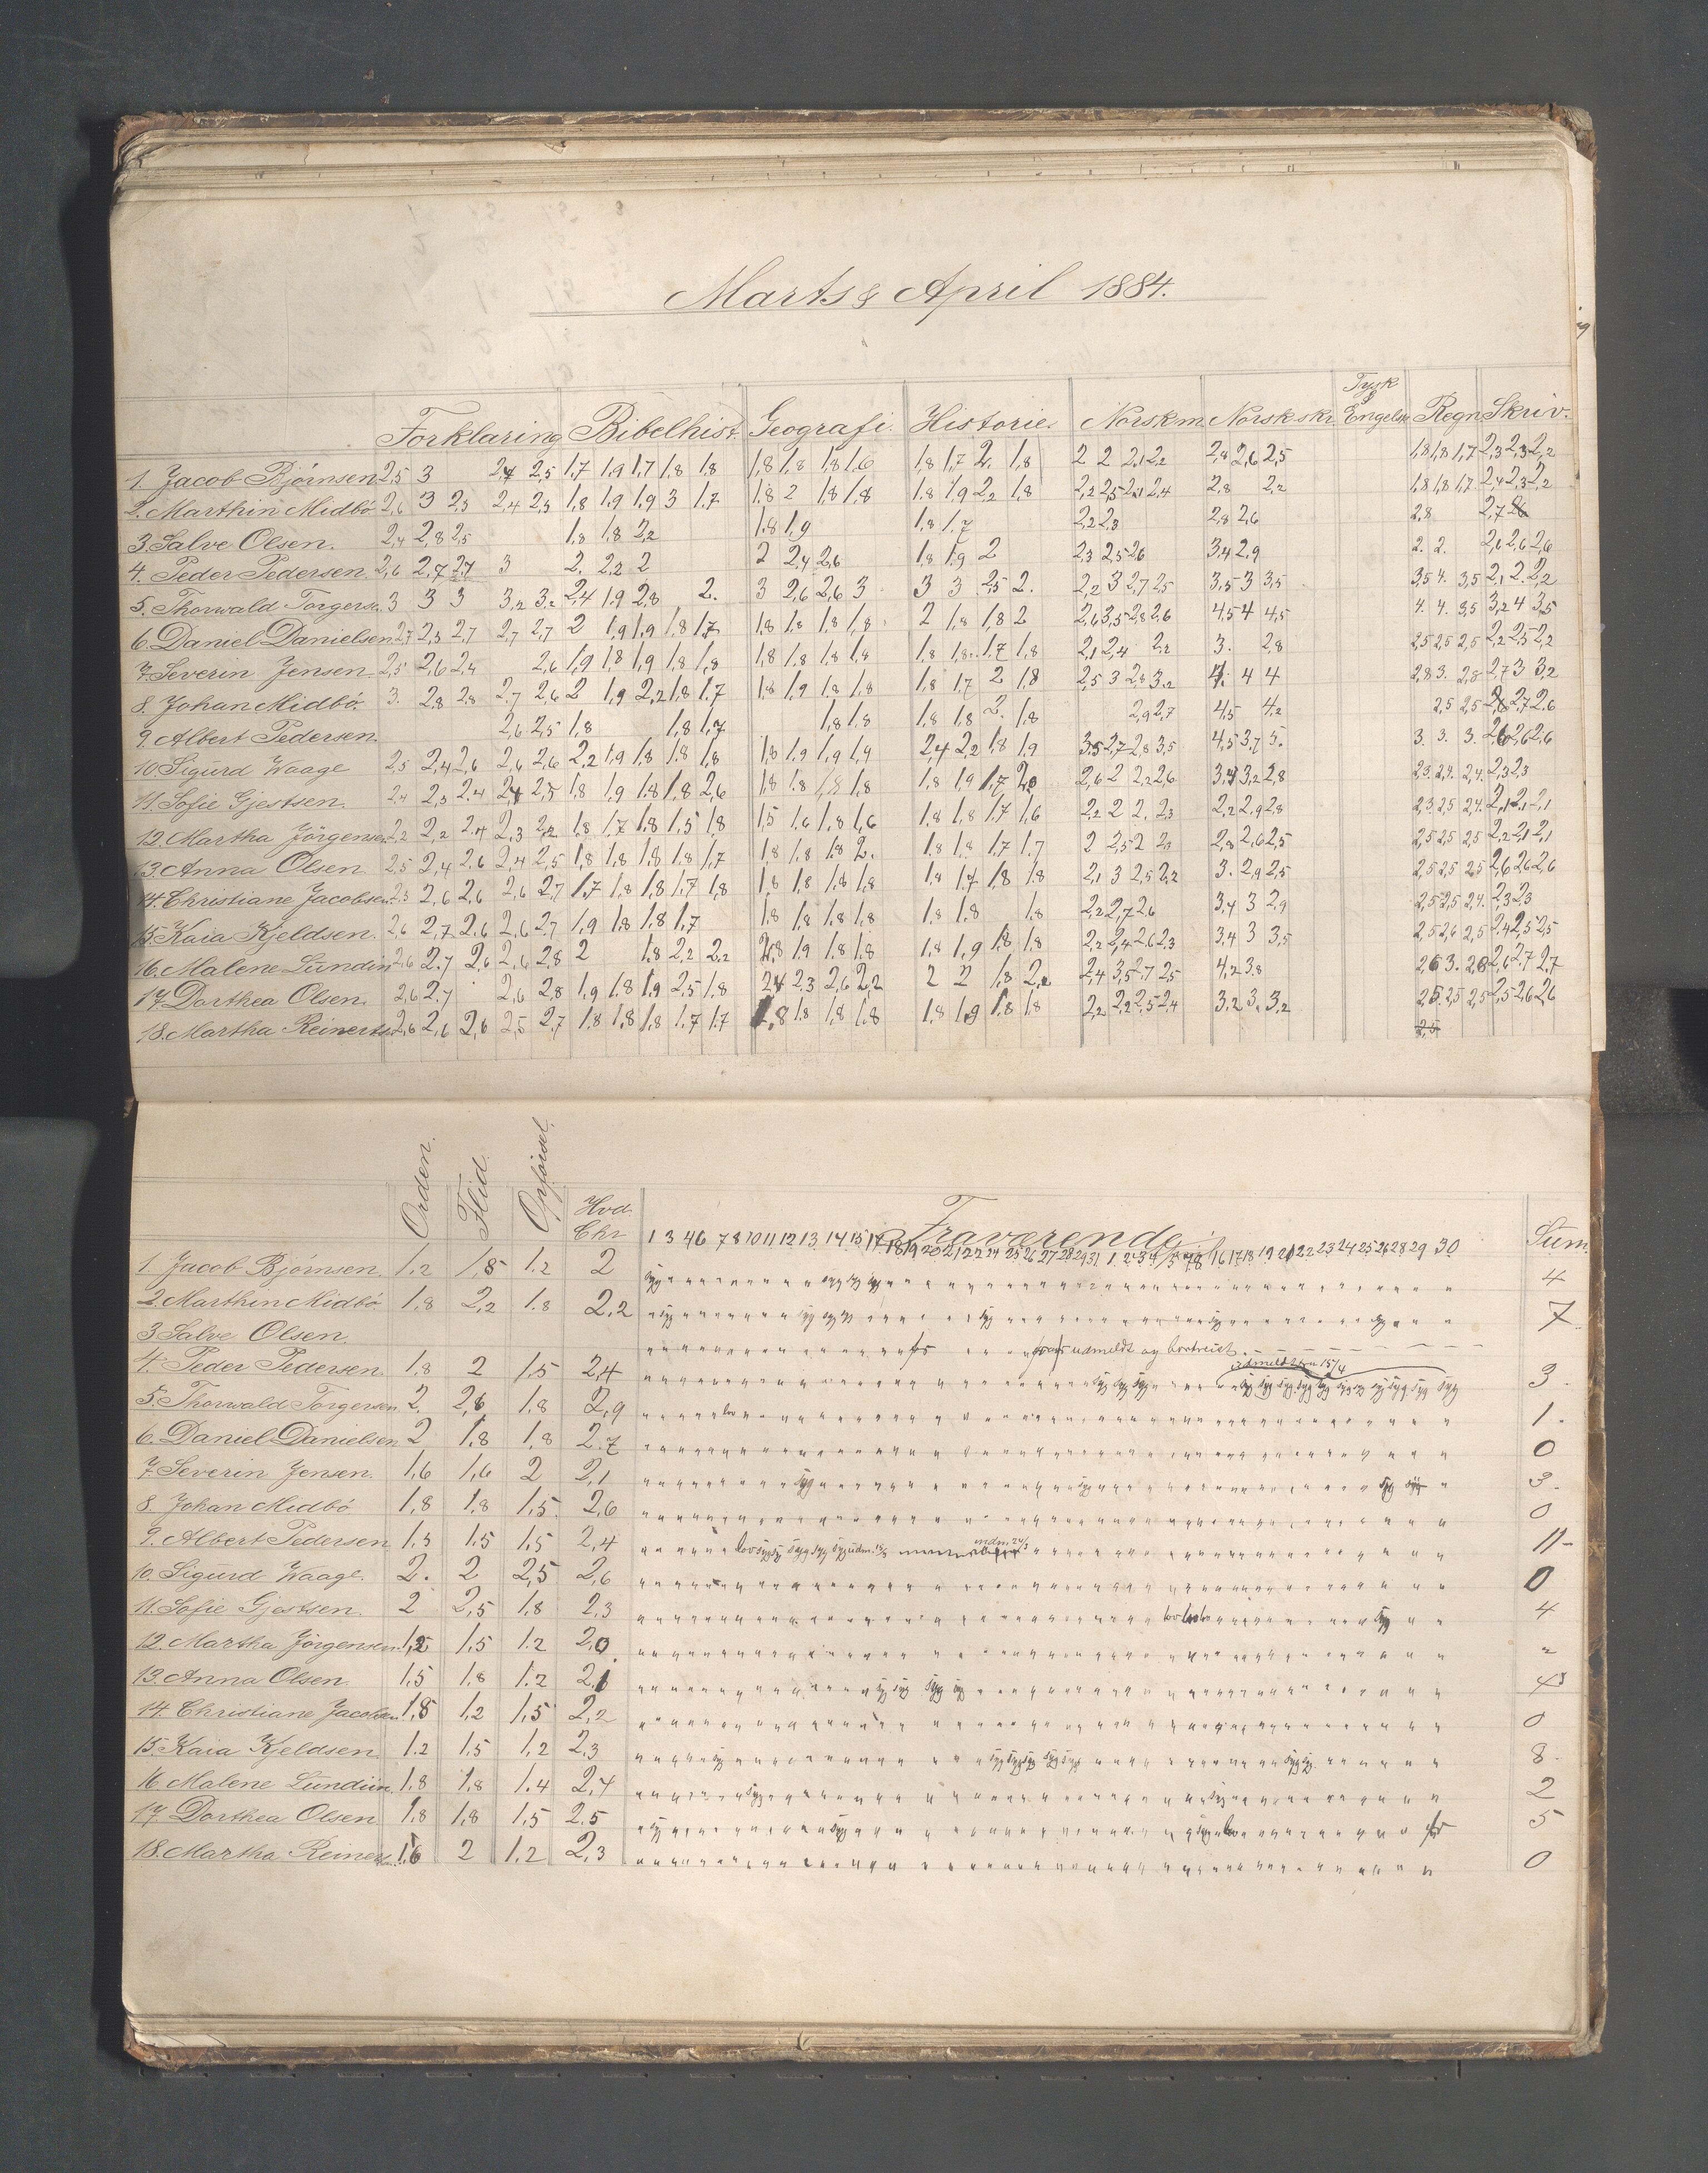 Marts & April 1884.
Tysk
Forklaring Bibelhist. Geografi. Historie. Norskm. Norskskr. & Engelsk Regn. Skriv.
1. Jacob Bjørnsen 2,5 3 2,4 2,5 1,7 1,9 1,7 1,8 1,8 1,8 1,8 1,8 1,6 1,8 1,7 2. 1,8 2 2 2,1 2,2 2,8 2,6 2,5 1,8 1,8 1,7 2,3 2,3 2,2
2. Marthin Midbö 2,6 3 2,3 2,4 2,3 1,8 1,9 1,9 3 1,7 1,8 2 1,8 1,8 1,8 1,9 2,2 1,8 2,2 2,5 2,1 2,4 2,8 2,2 1,8 1,8 1,7 2,4 2,3 2,2
3. Salve Olsen. 2,4 2,8 2,5 1,8 1,8 2,2 1,8 1,9 1,8 1,7 2,2 2,3 2,8 2,6 2,8 2,7
4. Peder Pedersen 2,6 2,7 2,7 3 2. 2,2 2 2 2,4 2,6 1,8 1,9 2 2,3 2,5 2,6 3,4 2,9 2. 2. 2,6 2,6 2,6
5. Thorwald Torgers. 3 3 3 3,2 3,2 2,4 1,9 2,8 2. 3 2,6 2,6 3 3 3 2,5 2. 2,2 3 2,7 2,5 3,5 3 3,5 3,5 4. 3,5 2,1 2. 2,2
6. Daniel Danielsen 2,7 2,3 2,7 2,7 2,7 2 1,9 1,9 1,8 1,7 1,8 1,8 1,8 1,8 2 1,8 1,8 2 2,6 3,5 2,8 2,6 4,5 4 4,5 4. 4. 3,5 3,2 4 3,5
7. Severin Jensen 2,5 2,6 2,4 2,6 1,9 1,8 1,9 1,8 1,8 1,8 1,8 1,8 1,8 1,8 1,8 1,7 1,8 2,1 2,4 2,2 3. 2,8 2,5 2,5 2,5 2,2 2,5 2,2
8. Johan Midbö. 3. 2,8 2,8 2,7 2,6 2 1,9 2,2 1,8 1,7 1,8 1,9 1,8 1,8 1,8 1,7 2 1,8 2,5 3 2,8 3,2 4. 4 4 2,8 3. 2,8 2,7 3 3,2
9. Albert Pedersen 2,6 2,5 1,8 1,8 1,7 1,8 1,8 1,8 1,8 2. 1,8 2,9 2,7 4,5 4,2 2,5 2,5 2,7 2,6
10. Sigurd Waage 2,5 2,4 2,6 2,6 2,6 2,2 1,9 1,8 1,8 1,8 1,8 1,9 1,9 1,9 2,4 2,2 1,8 1,9 3,5 2,7 2,8 3,5 4,5 3,7 5. 3. 3. 3. 2,6 2,6 2,6
11. Sofie Gjestsen. 2,4 2,3 2,4 2,4 2,5 1,8 1,9 1,8 1,8 2,6 1,8 1,8 1,8 1,8 1,8 1,9 1,7 2,0 2,6 2 2,2 2,6 3,4 3,2 2,8 2,3. 2,4. 2,4. 2,3 2,3
12. Martha Jörgensen 2,2 2,2 2,4 2,3 2,2 1,8 1,7 1,8 1,5 1,8 1,5 1,6 1,8 1,6 1,8 1,8 1,7 1,6 2,2 2 2. 2,3 2,2 2,9 2,8 2,3 2,5 2,4. 2,1 2,1 2,1
13. Anna Olsen. 2,5 2,4 2,6 2,4 2,5 1,8 1,8 1,8 1,8 1,7 1,8 1,8 1,8 2. 1,8 1,8 1,7 1,7 2 2,5 2 2,3 2,8 2,6 2,5 2,5 2,5 2,5 2,2 2,1 2,1
14. Christiane Jacobsen 2,5 2,6 2,6 2,6 2,7 1,7 1,8 1,8 1,7 1,8 1,8 1,8 1,8 1,8 1,8 1,7 1,8 1,8 2,1 3 2,5 2,2 3. 2,9 2,5 2,5 2,5 2,5 2,6 2,6 2,6
15. Kaia Kjeldsen. 2,6 2,7 2,6 2,6 2,7 1,9 1,8 1,8 1,7 1,8 1,8 1,8 1,8 1,8 1,8 1,8 2,2 2,7 2,6 3,4 3 2,9 2,5 2,5 2,4. 2,3 2,3
16. Malene Lundiin 2,6 2,7 2,6 2,6 2,8 2 1,8 2,2 2,2 1,8 1,9 1,8 1,8 1,8 1,9 1,8 1,8 2,2 2,4 2,6 2,3 3,4 3 3,5 2,5 2,6 2,5 2,4 2,5 2,5
17. Dorthea Olsen. 2,6 2,7 2,6 2,8 1,9 1,8 1,9 2,5 1,8 2,4 2,3 2,6 2,2 2 2 1,8 2,2 2,4 3,5 2,7 2,5 4,2 3,8 2,6 3. 2,8 2,6 2,7 2,7
18. Martha Reinerts. 2,6 2,6 2,6 2,5 2,7 1,8 1,8 1,8 1,7 1,7 1,8 1,8 1,8 1,8 1,8 1,9 1,8 1,8 2,2 2,2 2,5 2,4 3,2 3. 3,2 2,5 2,5 2,5 2,5 2,6 2,6
Orden. Flid. Opførsel. Hvd. Chr. Fraværende. Sum.
1 3 4 6 7 8 10 11 12 13 14 15 17 18 19 20 21 22 24 25 26 27 28 29 31 1. 2. 3. 4 16 17 18 19 21 22 23 24 25 26 28 29 30
1. Jacob Bjørnsen. 1,2 1,8 1,2 2 syg 4
2. Marthin Midbö 1,8 2,2 1,8 2,2 syg syg 7
3. Salve Olsen. fs udmeldt og bortreist.
4. Peder Pedersen. 1,8 2 1,5 2,4 syg syg syg udmeldt fra 15/4 syg syg syg syg syg 3
5. Thorwald Torgersen 2. 2,6 1,8 2,9 lov 1.
6. Daniel Danielsen 2 1,8 1,8 2,7 0
7. Severin Jensen. 1,6 1,6 2 2,1 syg syg syg 3.
8. Johan Midbö 1,8 1,8 1,5. 2,6 0
9. Albert Pedersen 1,3 1,5 1,5 2,4 lov syg syg syg syg syg udm. indm. 24/3 11
10. Sigurd Waage. 2. 2 2,5 2,6 0
11. Sofie Gjestsen. 2 2,5 1,8 2,3 lov lov lov syg 4
12. Martha Jörgensen. 1,2 1,5 1,2 2,0 "
13. Anna Olsen. 1,5 1,8 1,2 2,1 syg syg syg syg 4
14. Christiane Jacobsen. 1,8 1,2 1,5 2,2 0
15. Kaia Kjeldsen. 1,2 1,5 1,2 2,3 syg syg syg syg syg syg syg syg 8
16. Malene Lundiin. 1,8 1,8 1,4 2,4 syg syg 2
17. Dorthea Olsen 1,8 1,8 1,5 2,5 syg syg syg lov fs 5
18. Martha Reiners. 1,6 2 1,2 2,3 0